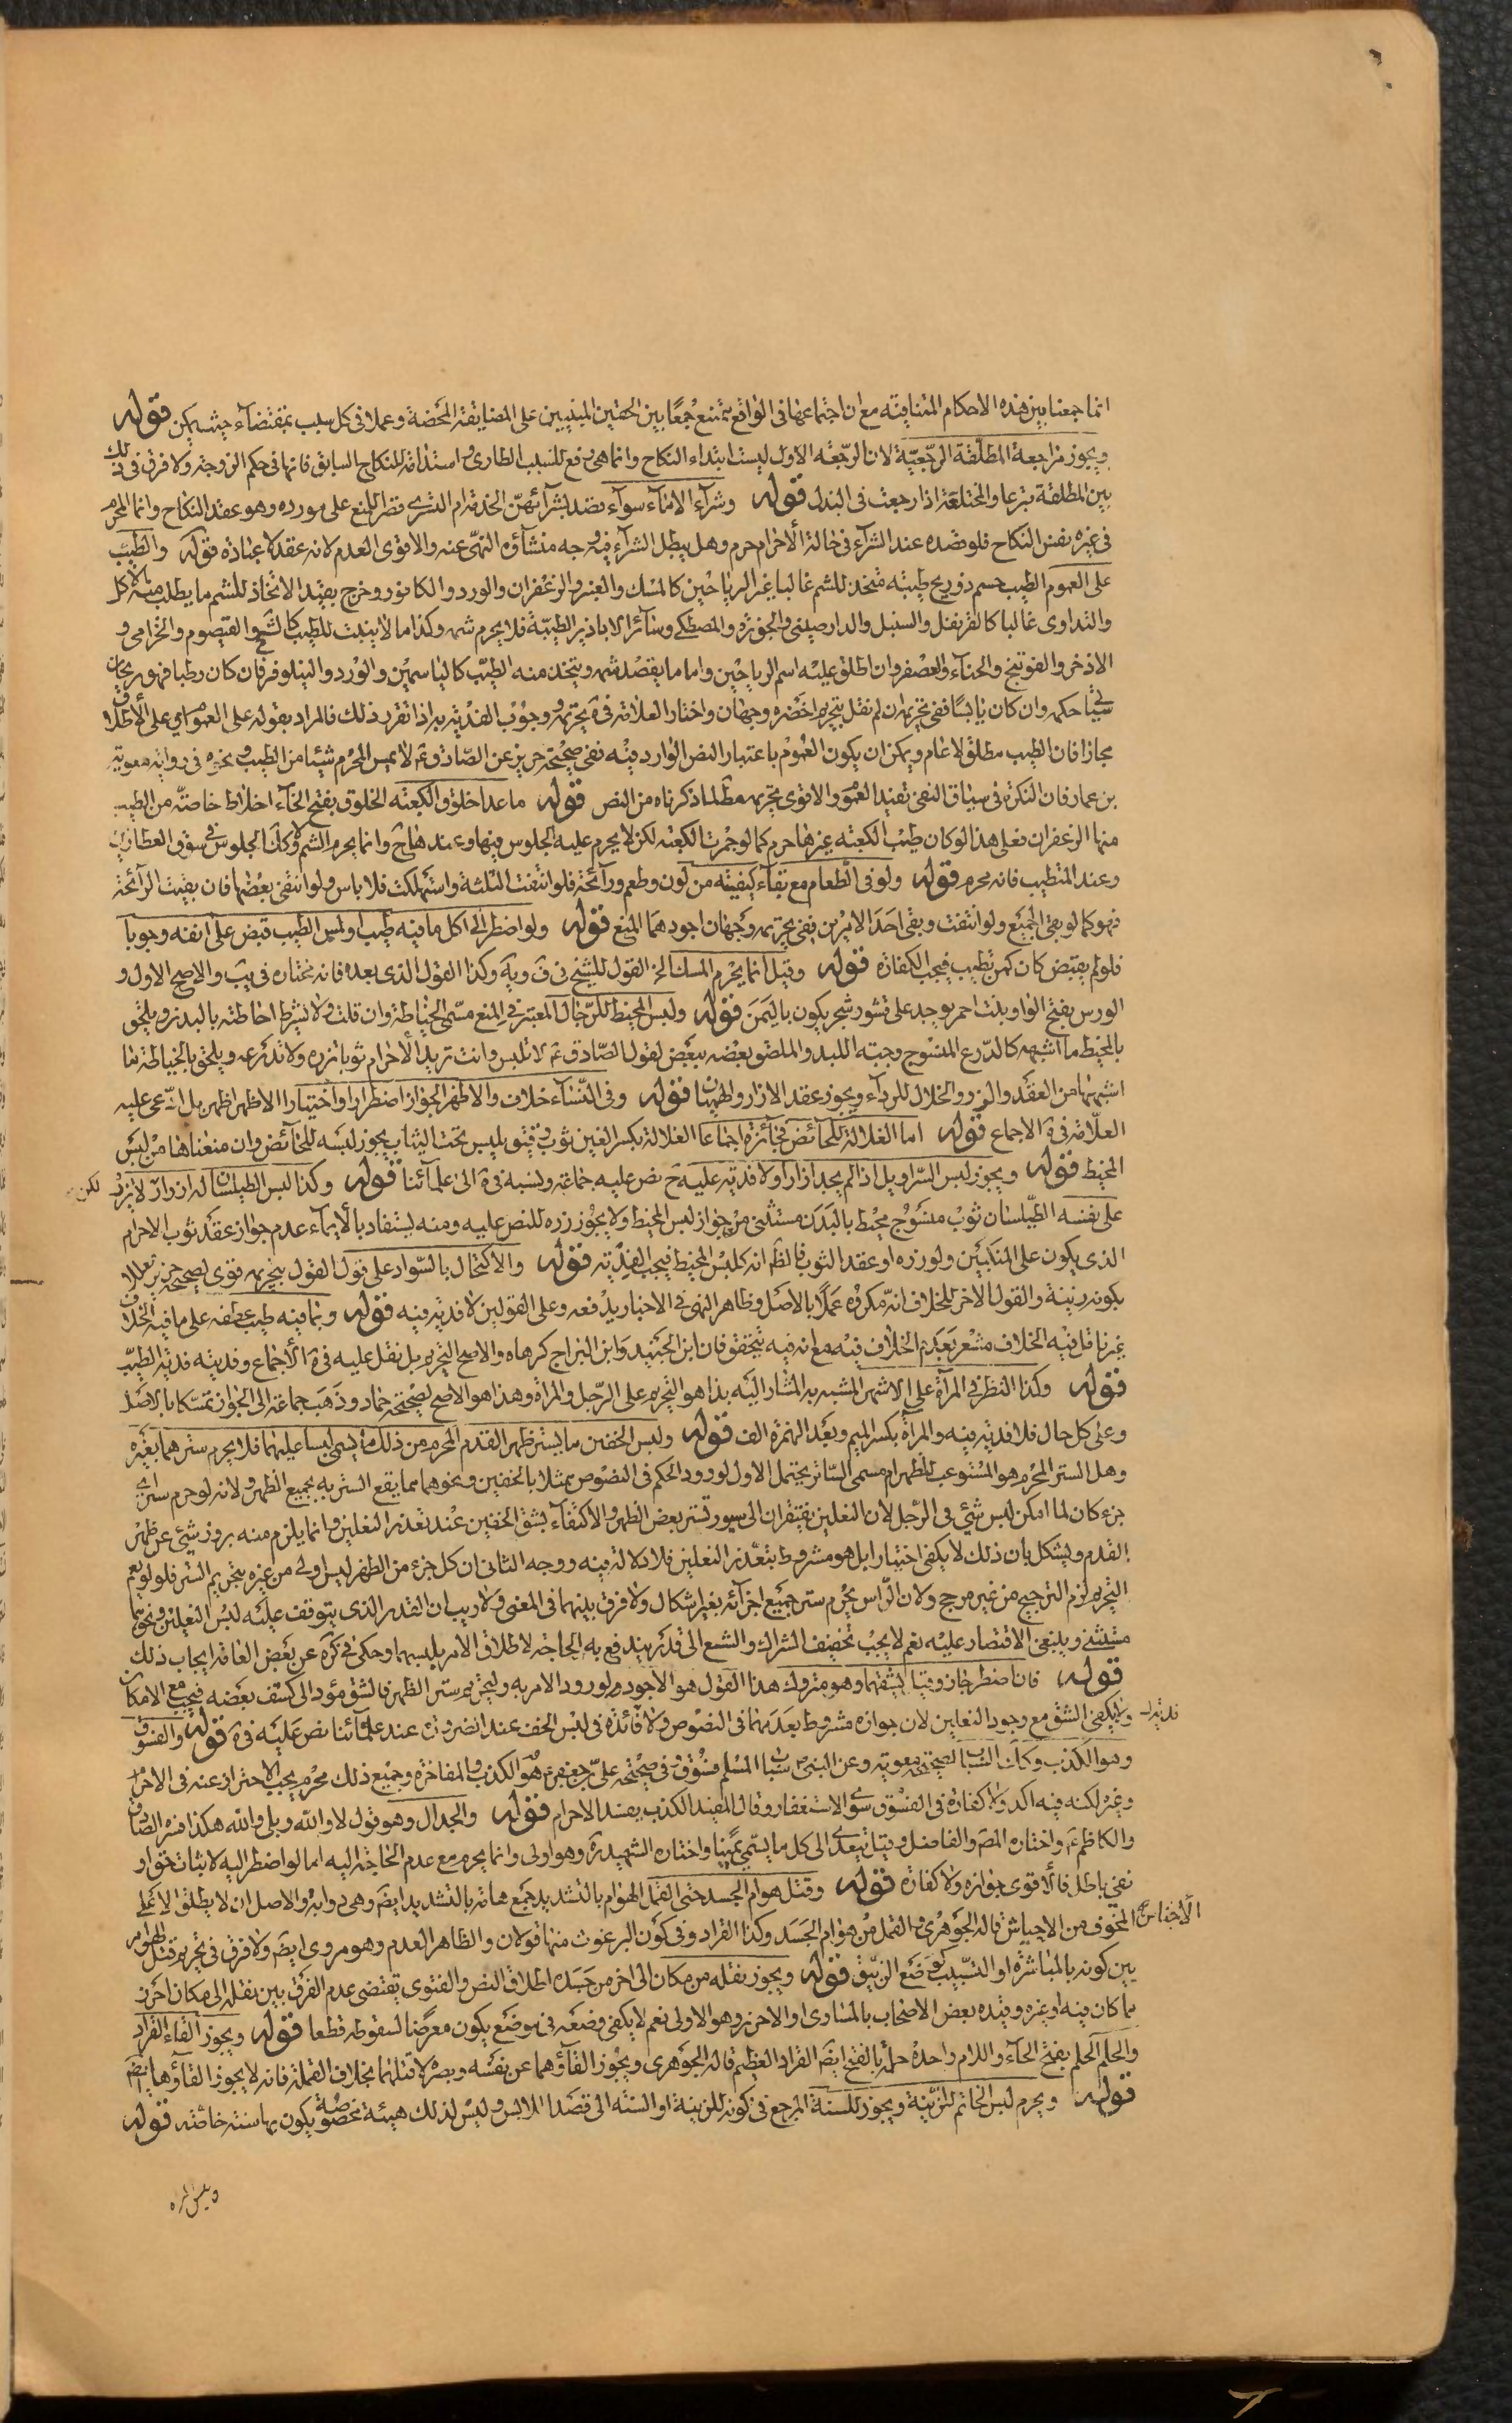 انما جمعنا بين هذه الاحكام المتنافية مع ان اجتماعها فى الواقع ممتنع جمعًا بين الحقين المبنيين على المضايقة المحضة وعملا فى كل سبب بمقتضاه حيث يمكن قوله
ويجوز مراجعة المطلقة الرجعية لان الرجعة الاول ليست ابتداء النكاح وانما هى رفع للسبب الطارى واستدامة للنكاح السابق فانها فى حكم الزوجة ولا فرق فى ذلك
بين المطلقة تبرعا والمختلعة اذا رجعت فى البذل قوله وشراء الاماء سواء قصد بشرائهن الخدمة ام التسرى قصرا للمنع على مورده وهو عقد النكاح وانما المحرم
فى غيره نفس النكاح فلو قصده عند الشراء فى حالة الاحرام حرم وهل يبطل الشراء فيه وجه منشاؤه النهى عنه والاقوى العدم لانه عقد لا عبادة قوله والطيب
على العموم الطيب جسم ذو ريح طيبة متخذ للشم غالبا غير الرياحين كالمسك والعنبر والزعفران والورد والكافور وخرج بقيد الاتخاذ للشم ما يطلب منه الاكل
والتداوى غالبا كالقرنفل والسنبل والدارصينى والجوزه والمصطكى وسائر الاباذير الطيبة فلا يحرم شمه وكذا ما لا ينبت للطيب كالشيح والقيصوم والخزامى و
الاذخر والفوتنج والحناء والعصفر وان اطلق عليه اسم الرياحين واما ما يقصد شمه ويتخذ منه الطيب كالياسمين والورد والنيلوفر فان كان رطبا فهو ريحان
سيجئ حكمه وان كان يابسًا ففى تحريمه ان لم نقل بتحريم اخضره وجهان واختار العلامة فى ة تحريمه ووجوب الفدية به اذا تقرر ذلك فالمراد بقوله على العموم اى على الاطلاق
مجازا فان الطيب مطلق لا عام ويمكن ان يكون العموم باعتبار النص الوارد فيه ففى صحيحة حريز عن الصادق ع لا يمس المحرم شيئا من الطيب ونحوه فى رواية معوية
بن عمار فان النكرة فى سياق النفى تفيد العموم والاقوى تحريمه مطلقا لما ذكرناه من النص قوله ما عدا خلوق الكعبة الخلوق بفتح الخاء اخلاط خاصة من الطيب
منها الزعفران فعلى هذا لو كان طيب الكعبة غيرها حرم كما لو جمرت الكعبة لكن لا يحرم عليه الجلوس فيها وعندها ح وانما يحرم الشم وكذا الجلوس فى سوق العطارين
وعند المتطيب فانه محرم قوله ولو فى الطعام مع بقاء كيفيته من لون وطعم ورائحة فلو انتفت الثلثة واستهلكت فلا باس ولو انتفى بعضها فان بقيت الرائحة
فهو كما لو بقى الجميع ولو انتفت وبقى احد الامرين ففى تحريمه وجهان اجودهما المنع قوله ولو اضطر الى اكل ما فيه طيب او لمس الطيب قبض على انفه وجوبا
فلو لم يقبض كان كمن تطيب فيجب الكفارة قوله وقيل انما يحرم المسك الخ القول للشيخ فى ق ويه وكذا القول الذى بعده فانه مختاره فى يب والاصح الاول و
الورس بفتح الواو نبت احمر يوجد على قشور شجر يكون باليمن قوله ولبس المخيط للرجال المعتبر فى المنع مسمى الخياطة وان قلت ولا يشترط احاطته بالبدن ويلحق
بالمخيط ما اشبهه كالدرع المنسوج وجبة اللبد والملصق بعضه ببعض لقول الصادق ع لا تلبس وانت تريد الاحرام ثوبا تزره ولا تدرعه ويلحق بالخياطة ما
اشبهها من العقد والزر والخلال للرداء ويجوز عقد الازار والهميان قوله وفى النساء خلاف والاظهر الجواز اضطرارا واختيارا الاظهر اظهر بل ادعى عليه
العلامة فى ة الاجماع قوله اما الغلالة للحائض فجائزة اجماعا الغلالة بكسر الغين ثوب رقيق يلبس تحت الثياب يجوز لبسه للحائض وان منعناها من لبس
المخيط قوله ويجوز لبس السراويل اذا لم يجد ازارا ولا فدية عليه ح نص عليه جماعة ونسبه فى ة الى علمائنا قوله وكذا لبس الطيلسان له ازرار لا يزره لكن
على نفسه الطيلسان ثوب منسوج محيط بالبدن مستثنى من جواز لبس المخيط ولا يجوز زره للنص عليه ومنه يستفاد بالايماء عدم جواز عقد ثوب الاحرام
الذى يكون على المنكبين ولو زره او عقد الثوب فالظ انه كلبس المخيط فيجب الفدية قوله والاكتحال بالسواد على قول القول بتحريمه قوى لصحيحة حريز تعليلا
بكونه زينة والقول الاخر للخلاف انه مكروه عملا بالاصل وظاهر النهى فى الاخبار يدفعه وعلى القولين لا فدية فيه قوله وبما فيه طيب عطفه على ما فيه الخلاف
غير ناقل فيه الخلاف مشعر بعدم الخلاف فيه مع انه فيه متحقق فان ابن الجنيد وابن البراج كرهاه والاصح التحريم بل نقل عليه فى ة الاجماع وفديته فدية الطيب
قوله وكذا النظر فى المرآة على الاشهر المشبه به المشار اليه بذا هو التحريم على الرجل والمراة وهذا هو الاصح لصحيحة حماد وذهب جماعة الى الجواز تمسكا بالاصل
وعلى كل حال فلا فدية فيه والمرآة بكسر الميم وبعد الهمزة الف قوله ولبس الخفين ما يستر ظهر القدم المحرم من ذلك ما يسمى لبسا عليهما فلا يحرم سترهما بغيره
وهل الستر المحرم هو المستوعب للظهر ام مسمى الساتر يحتمل الاول لورود الحكم فى النصوص ممثلا بالخفين ونحوهما مما يقع الستر به بجميع الظهر ولانه لو حرم ستر اى
جزء كان لما امكن لبس شئ فى الرجل لان النعلين يفتقران الى سيور تستر بعض الظهر والاكتفاء بشق الخفين عند تعذر النعلين وانما يلزم منه بروز شئ عن ظهر
القدم ويشكل بان ذلك لا يكفى اختيارا بل هو مشروط بتعذر النعلين فلا دلالة فيه ووجه الثانى ان كل جزء من الظهر ليس اولى من غيره بتحريم الستر فلو لم يعم
التحريم لزم الترجيح من غير مرجح ولان الراس يحرم ستر جميع اجزائه بغير اشكال ولا فرق بينهما فى المعنى ولا ريب ان القدر الذى يتوقف عليه لبس النعلين ونحوهما
مستثنى وينبغى الاقتصار عليه نعم لا يجب تخفيف الشراك والشسع الى قدر يندفع به الحاجة لاطلاق الامر بلبسهما وحكى فى كره عن بعض العامة ايجاب ذلك
قوله فان اضطر جاز وقيل يشقهما وهو متروك هذا القول هو الاجود لورود الامر به ولتحريم ستر الظهر فالشق مؤد الى كشف بعضه فيجب مع الامكان
ولا يكفى الشق مع وجود النعلين لان جوازه مشروط بعدمهما فى النصوص ولا فائدة فى لبس الخف عند الضرورة عند علمائنا نص عليه فى ة قوله والفسوق
وهو الكذب وكذا السباب لصحيحة معوية وعن النبى ص سباب المسلم فسوق وفى صحيحة على بن جعفر ع هو الكذب والمفاخرة وجميع ذلك محرم يجب الاحتراز عنه فى الاحرام
وغيره لكنه فيه اكد ولا كفارة فى الفسوق سوى الاستغفار وقال المفيد الكذب يفسد الاحرام قوله والجدال وهو قول لا والله وبلى والله هكذا فسره الصادق
والكاظم ع واختاره المص والفاضل وقيل يتعدى الى كل ما يسمى يمينا واختاره الشهيد ره وهو اولى وانما يحرم مع عدم الحاجة اليه اما لو اضطر اليه لاثبات حق او
نفى باطل فالاقوى جوازه ولا كفارة قوله وقتل هوام الجسد حتى القمل الهوام بالتشديد جمع هامة بالتشديد ايضا وهى دوابه والاصل ان لا يطلق الا على
المخوف من الاحناش قاله الجوهرى والقمل من هوام الجسد وكذا القراد وفى كون البرغوث منها قولان والظاهر العدم وهو مروى ايضا ولا فرق فى تحريم قتل الهوام
بين كونه بالمباشرة او التسبيب كوضع الزيبق قوله ويجوز نقله من مكان الى اخر من جسده اطلاق النص والفتوى يقتضى عدم الفرق بين نقله الى مكان احرز
مما كان فيه او غيره وقيده بعض الاصحاب بالمساوى او الاحرز وهو الاولى نعم لا يكفى وضعه فى موضع يكون معرضا لسقوطه قطعا قوله ويجوز القاء القراد
والحلم الحلم بفتح الحاء واللام واحده حلمة بالفتح ايضا القراد العظيم قاله الجوهرى ويجوز القاؤهما عن نفسه وبعيره لا قتلهما بخلاف القملة فانه لا يجوز القاؤها ايضا
قوله ويحرم لبس الخاتم للزينة ويجوز للسنة المرجع فى كونه للزينة او السنة الى قصد اللابس وليس لذلك هيئة مخصوصة يكون بها سنة خاصة قوله
ولبس المراة